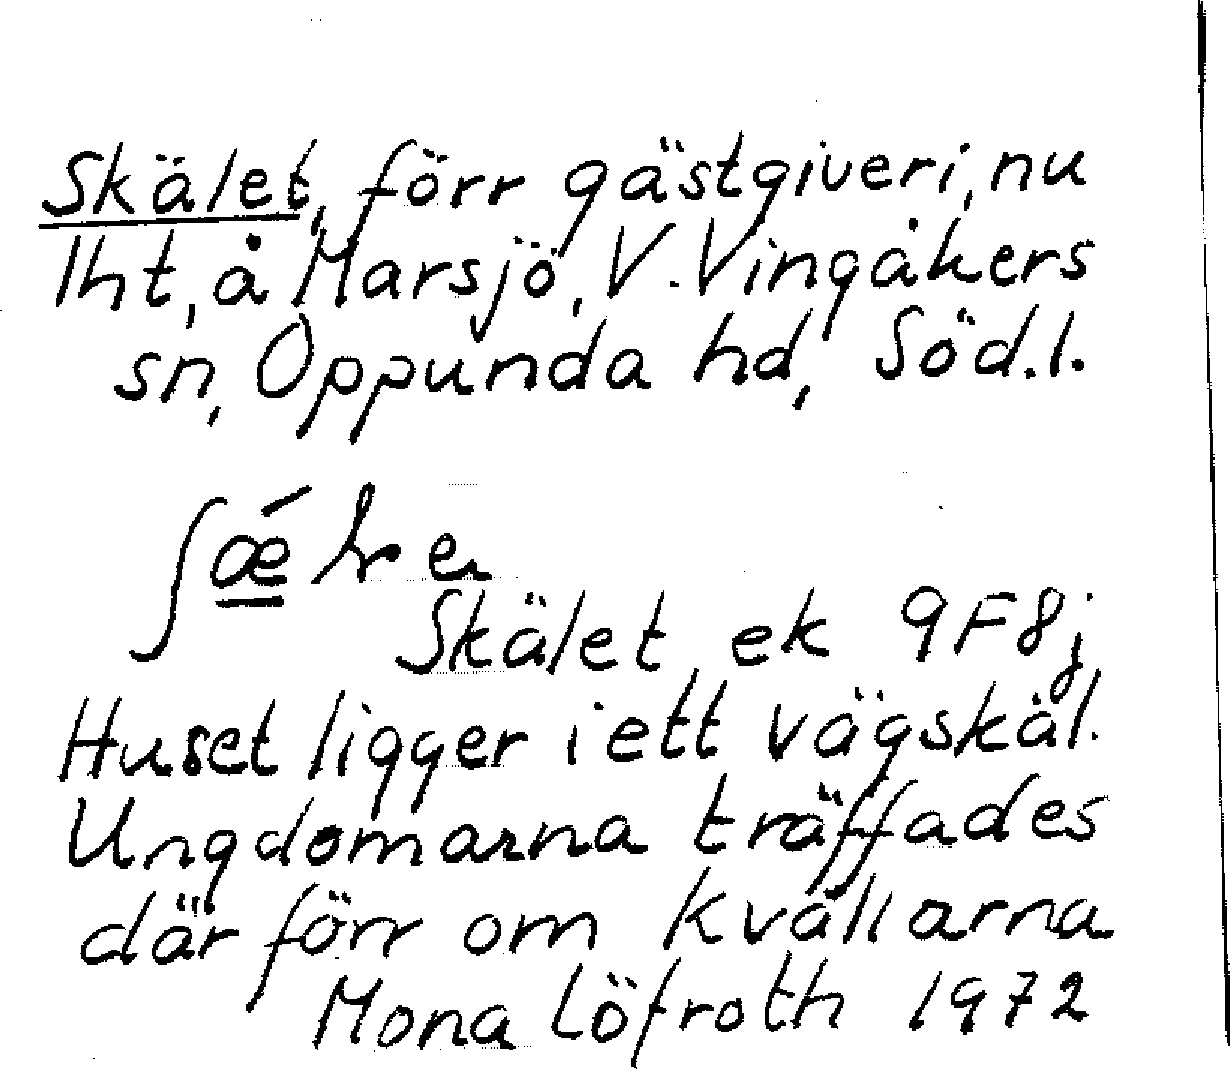 Skälet, förr gästgiveri, nu
lht, å Marsjö, V. Vingåkers
sn, Oppunda hd, Söd.l.
Skälet ek 9F8j
Huset ligger i ett vägskäl.
Ungdomarna träffades
där förr om kvällarna
Mona Löfroth 1972